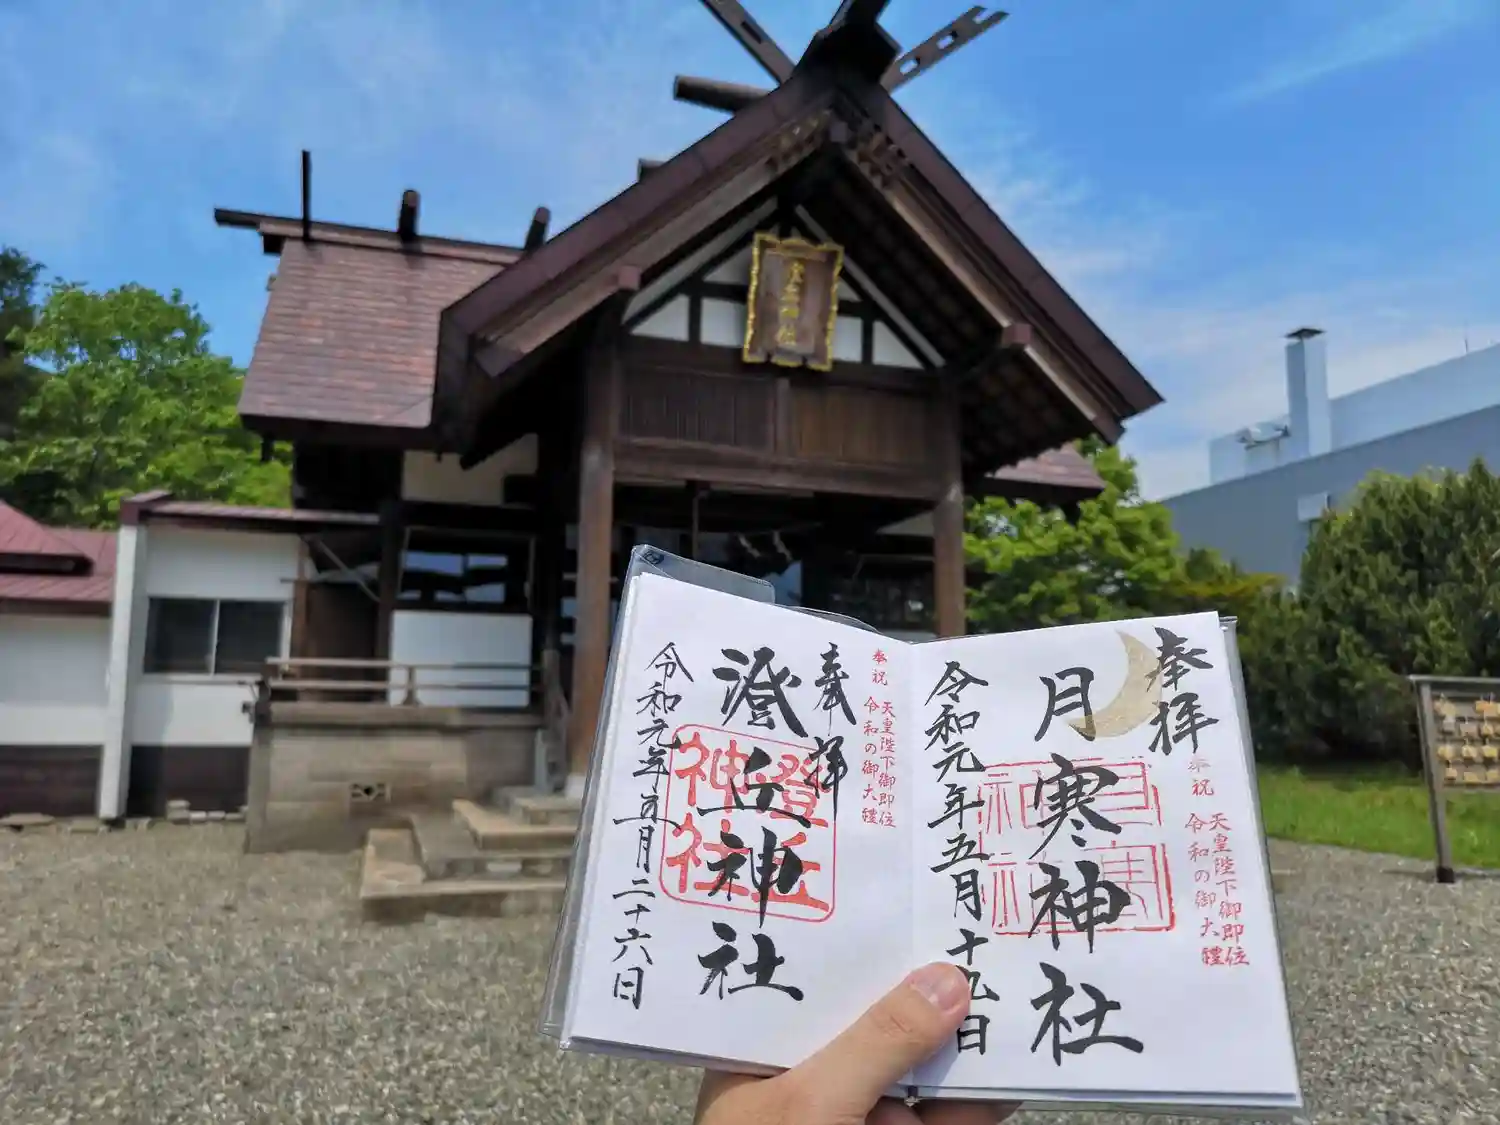 澄丘神社
奉拝
奉祝 天皇陛下御即位
令和の御大禮
月寒神社
令和元年五月十九日
奉拝
奉祝 天皇陛下御即位
令和の御大禮
澄丘神社
澄丘
神社
令和元年五月二十六日